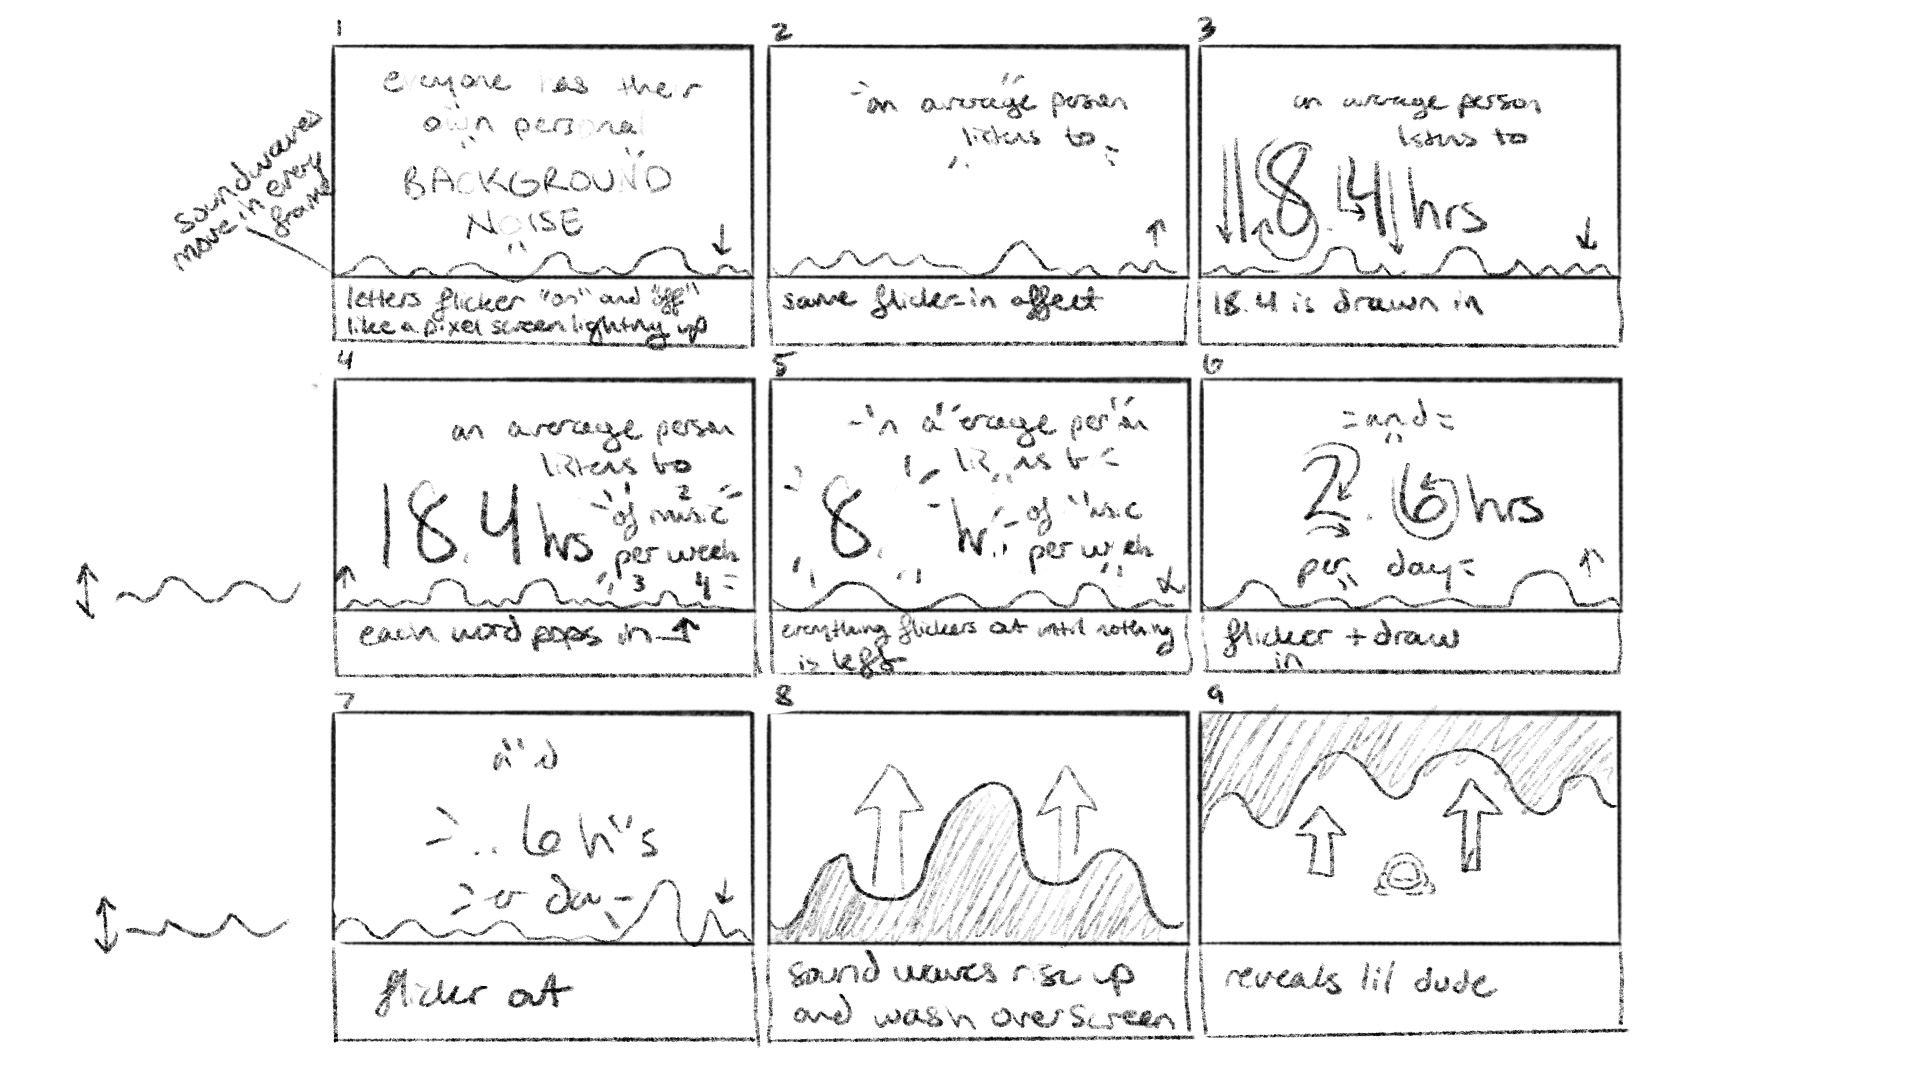 1
everyone has their
own personal
BACKGROUND
NOISE
soundwaves
move in every
frame
letters flicker "on" and "off"
like a pixel screen lighting up
2
an average person
listens to
same flicker-in affect
3
an average person
listens to
18.4 hrs
18.4 is drawn in
4
an average person
listens to
18.4 hrs of music
per week
1 2
3 4
each word pops in
5
n a erage per n
lis ns t
8. hr of usic
per week
everything flickers out until nothing
is left
6
and
2.6 hrs
per day
flicker + draw
in
7
a d
. 6 h s
er da
flicker out
8
sound waves rise up
and wash over screen
9
reveals lil dude